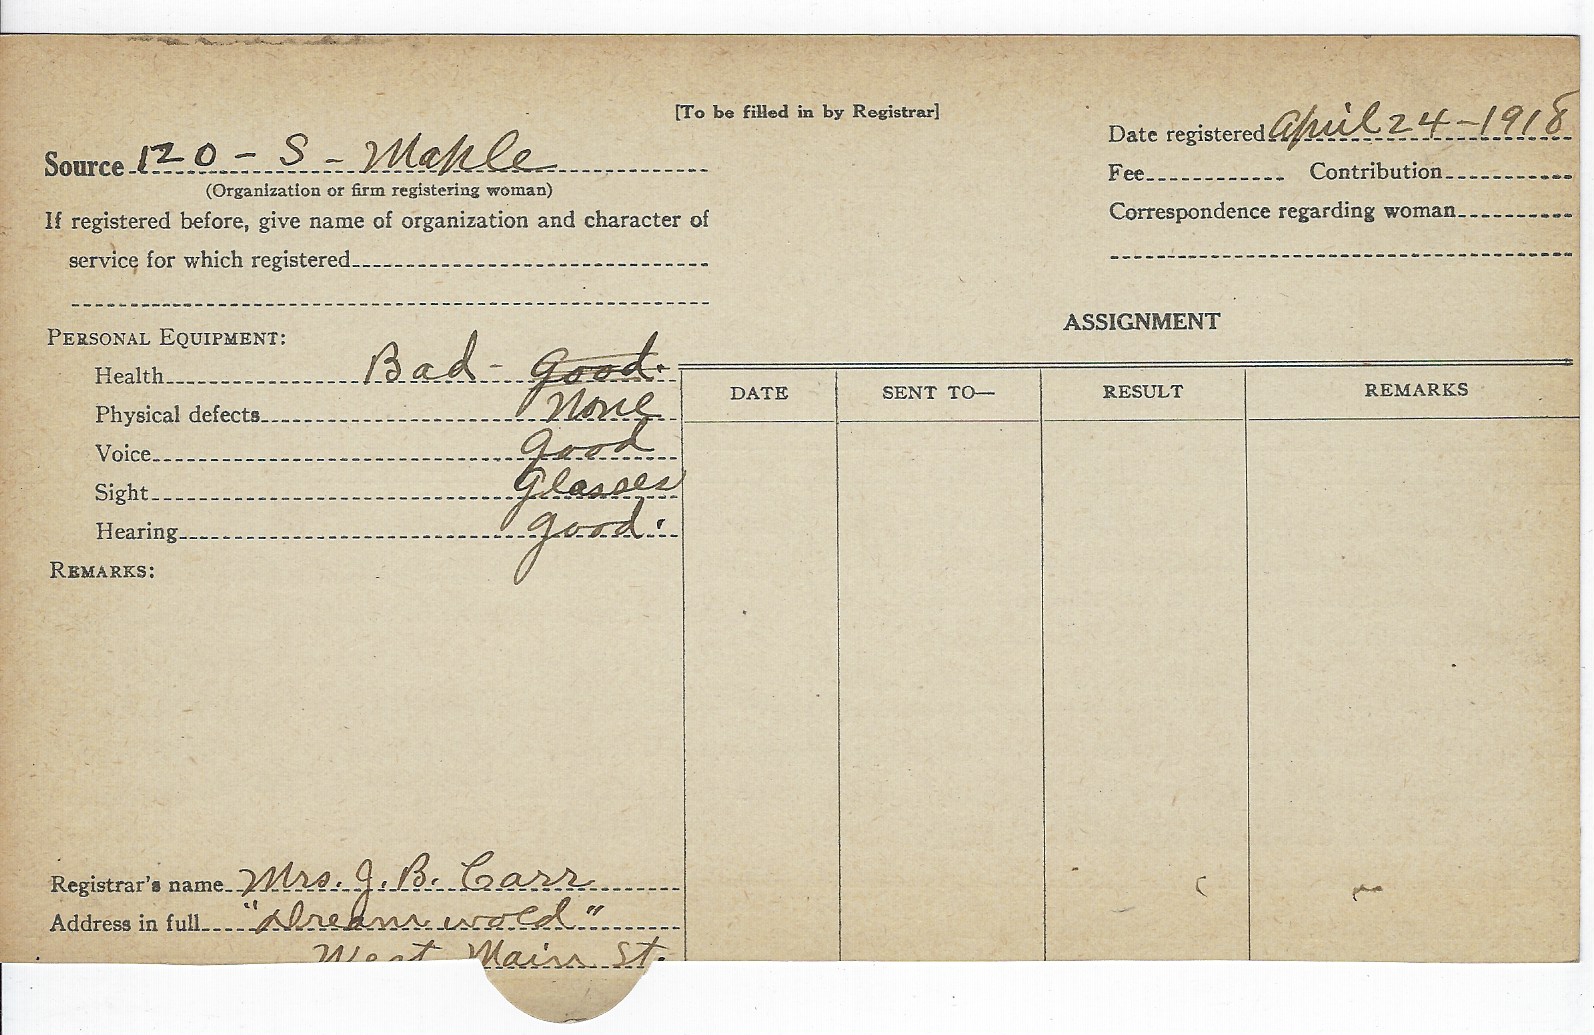 [To be filled in by Registrar]
Source 120 - S - Maple
(Organization or firm registering woman)
If registered before, give name of organization and character of
service for which registered
Date registered April 24-1918
Fee Contribution
Correspondence regarding woman
PERSONAL EQUIPMENT:
Health Bad - good.
Physical defects None
Voice good
Sight Glasses
Hearing good.
REMARKS:
ASSIGNMENT
DATE SENT TO— RESULT REMARKS
Registrar's name Mrs. J. B. Carr
Address in full "Dreamwold"
West Main St.